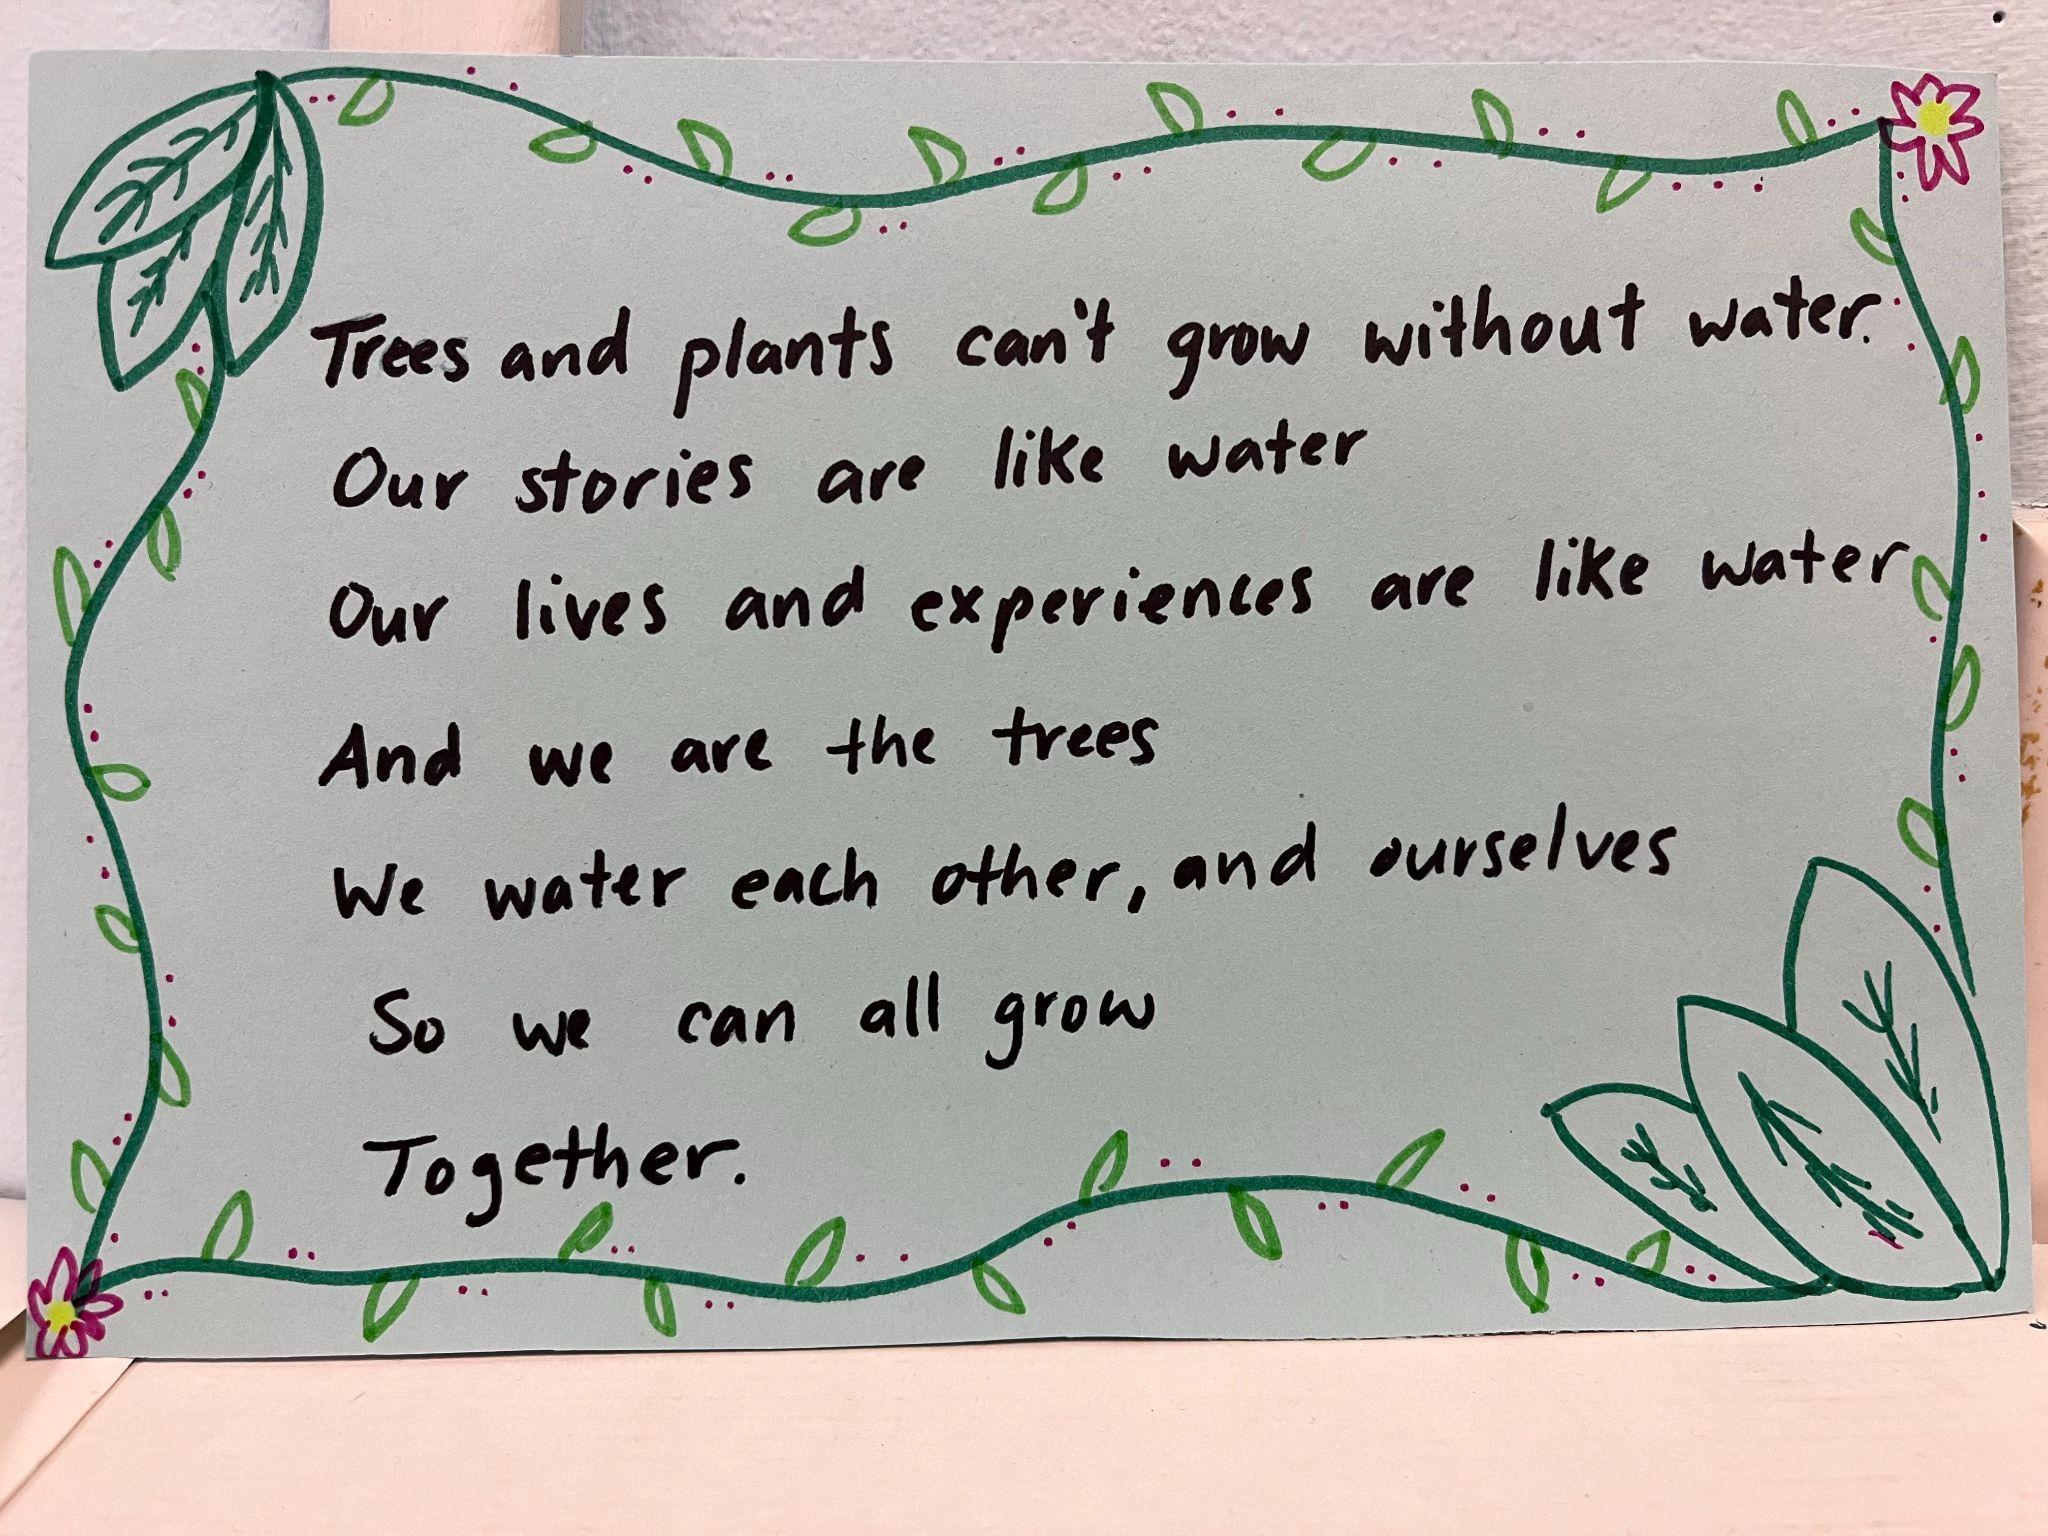 Trees and plants can't grow without water.
Our stories are like water
Our lives and experiences are like water
And we are the trees
We water each other, and ourselves
So we can all grow
Together.